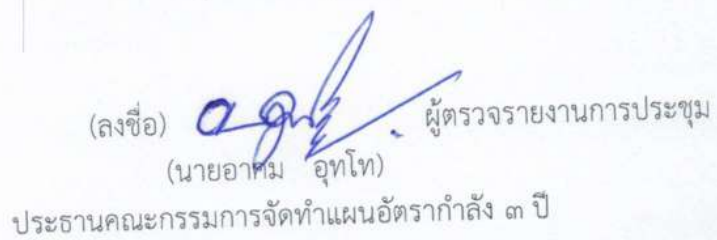 (ลงชื่อ) ผู้ตรวจรายงานการประชุม
(นายอาคม อุทโท)
ประธานคณะกรรมการจัดทำแผนอัตรากำลัง ๓ ปี